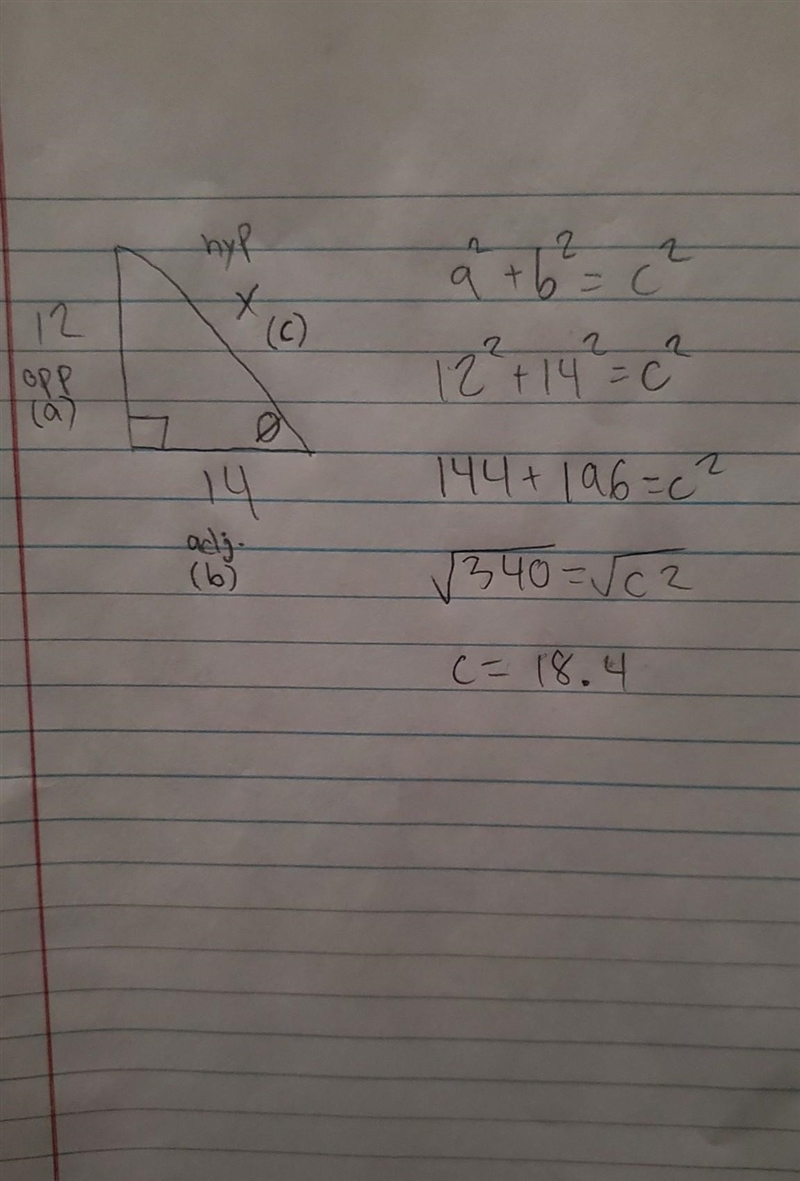 hyp
x
(c)
12
opp
(a)
θ
14
adj.
(b)
a² + b² = c²
12² + 14² = c²
144 + 196 = c²
√340 = √c2
c = 18.4